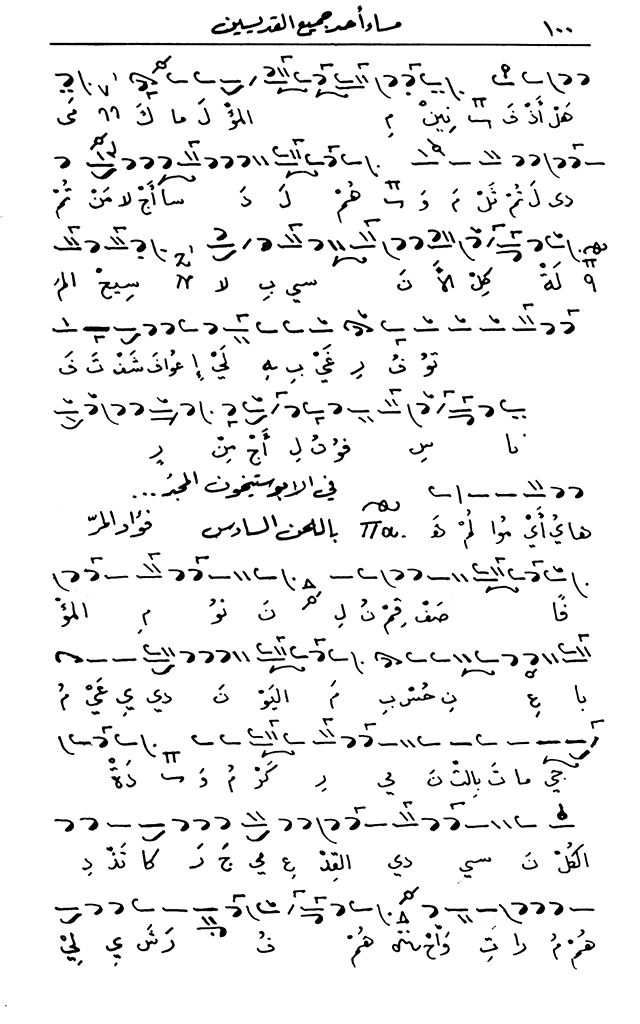 ١٠٠ مساء أحد جميع القديسين
هَلْ أَذْ خَ نِينْ مِ المؤْ لَ ما كَ
دى لَ تُمْ ثَلْ مَ وَ هُمْ لَ دَ سا أَجْ لا مَنْ تُمْ
لَةْ كِلْ الأَ نَ سي بِ لا سِيحْ المَ
تو فُ رِ غَيْ بِ هِ لَيْ إِ عوافَ شَفْ تَ فَ
نا سِ فو نُ لِ أَجْ مِنْ رِ
في الابوستيخون المجدُ...
هايُ أَيْ مُوا لُمْ هَ باللحن السادس فؤاد المرّ
فَا صَفْ قِمْ نُ لِ نَ نو مِ المؤْ
با عِ نِ حُسْ بِ مَ اليَوْ نَ دي يِ عَيْ مُ
جي ما تَ بِالتْ نَ مي رِ كَرْ مُ وَ دَةْ
الكُلْ نَ سي دي القِدْ عِ مي جَ رَ كا تَذْ دِ
هُمْ مُ را تِ وَأَخْ هُمْ فُ رَ شَ يِ لِيْ